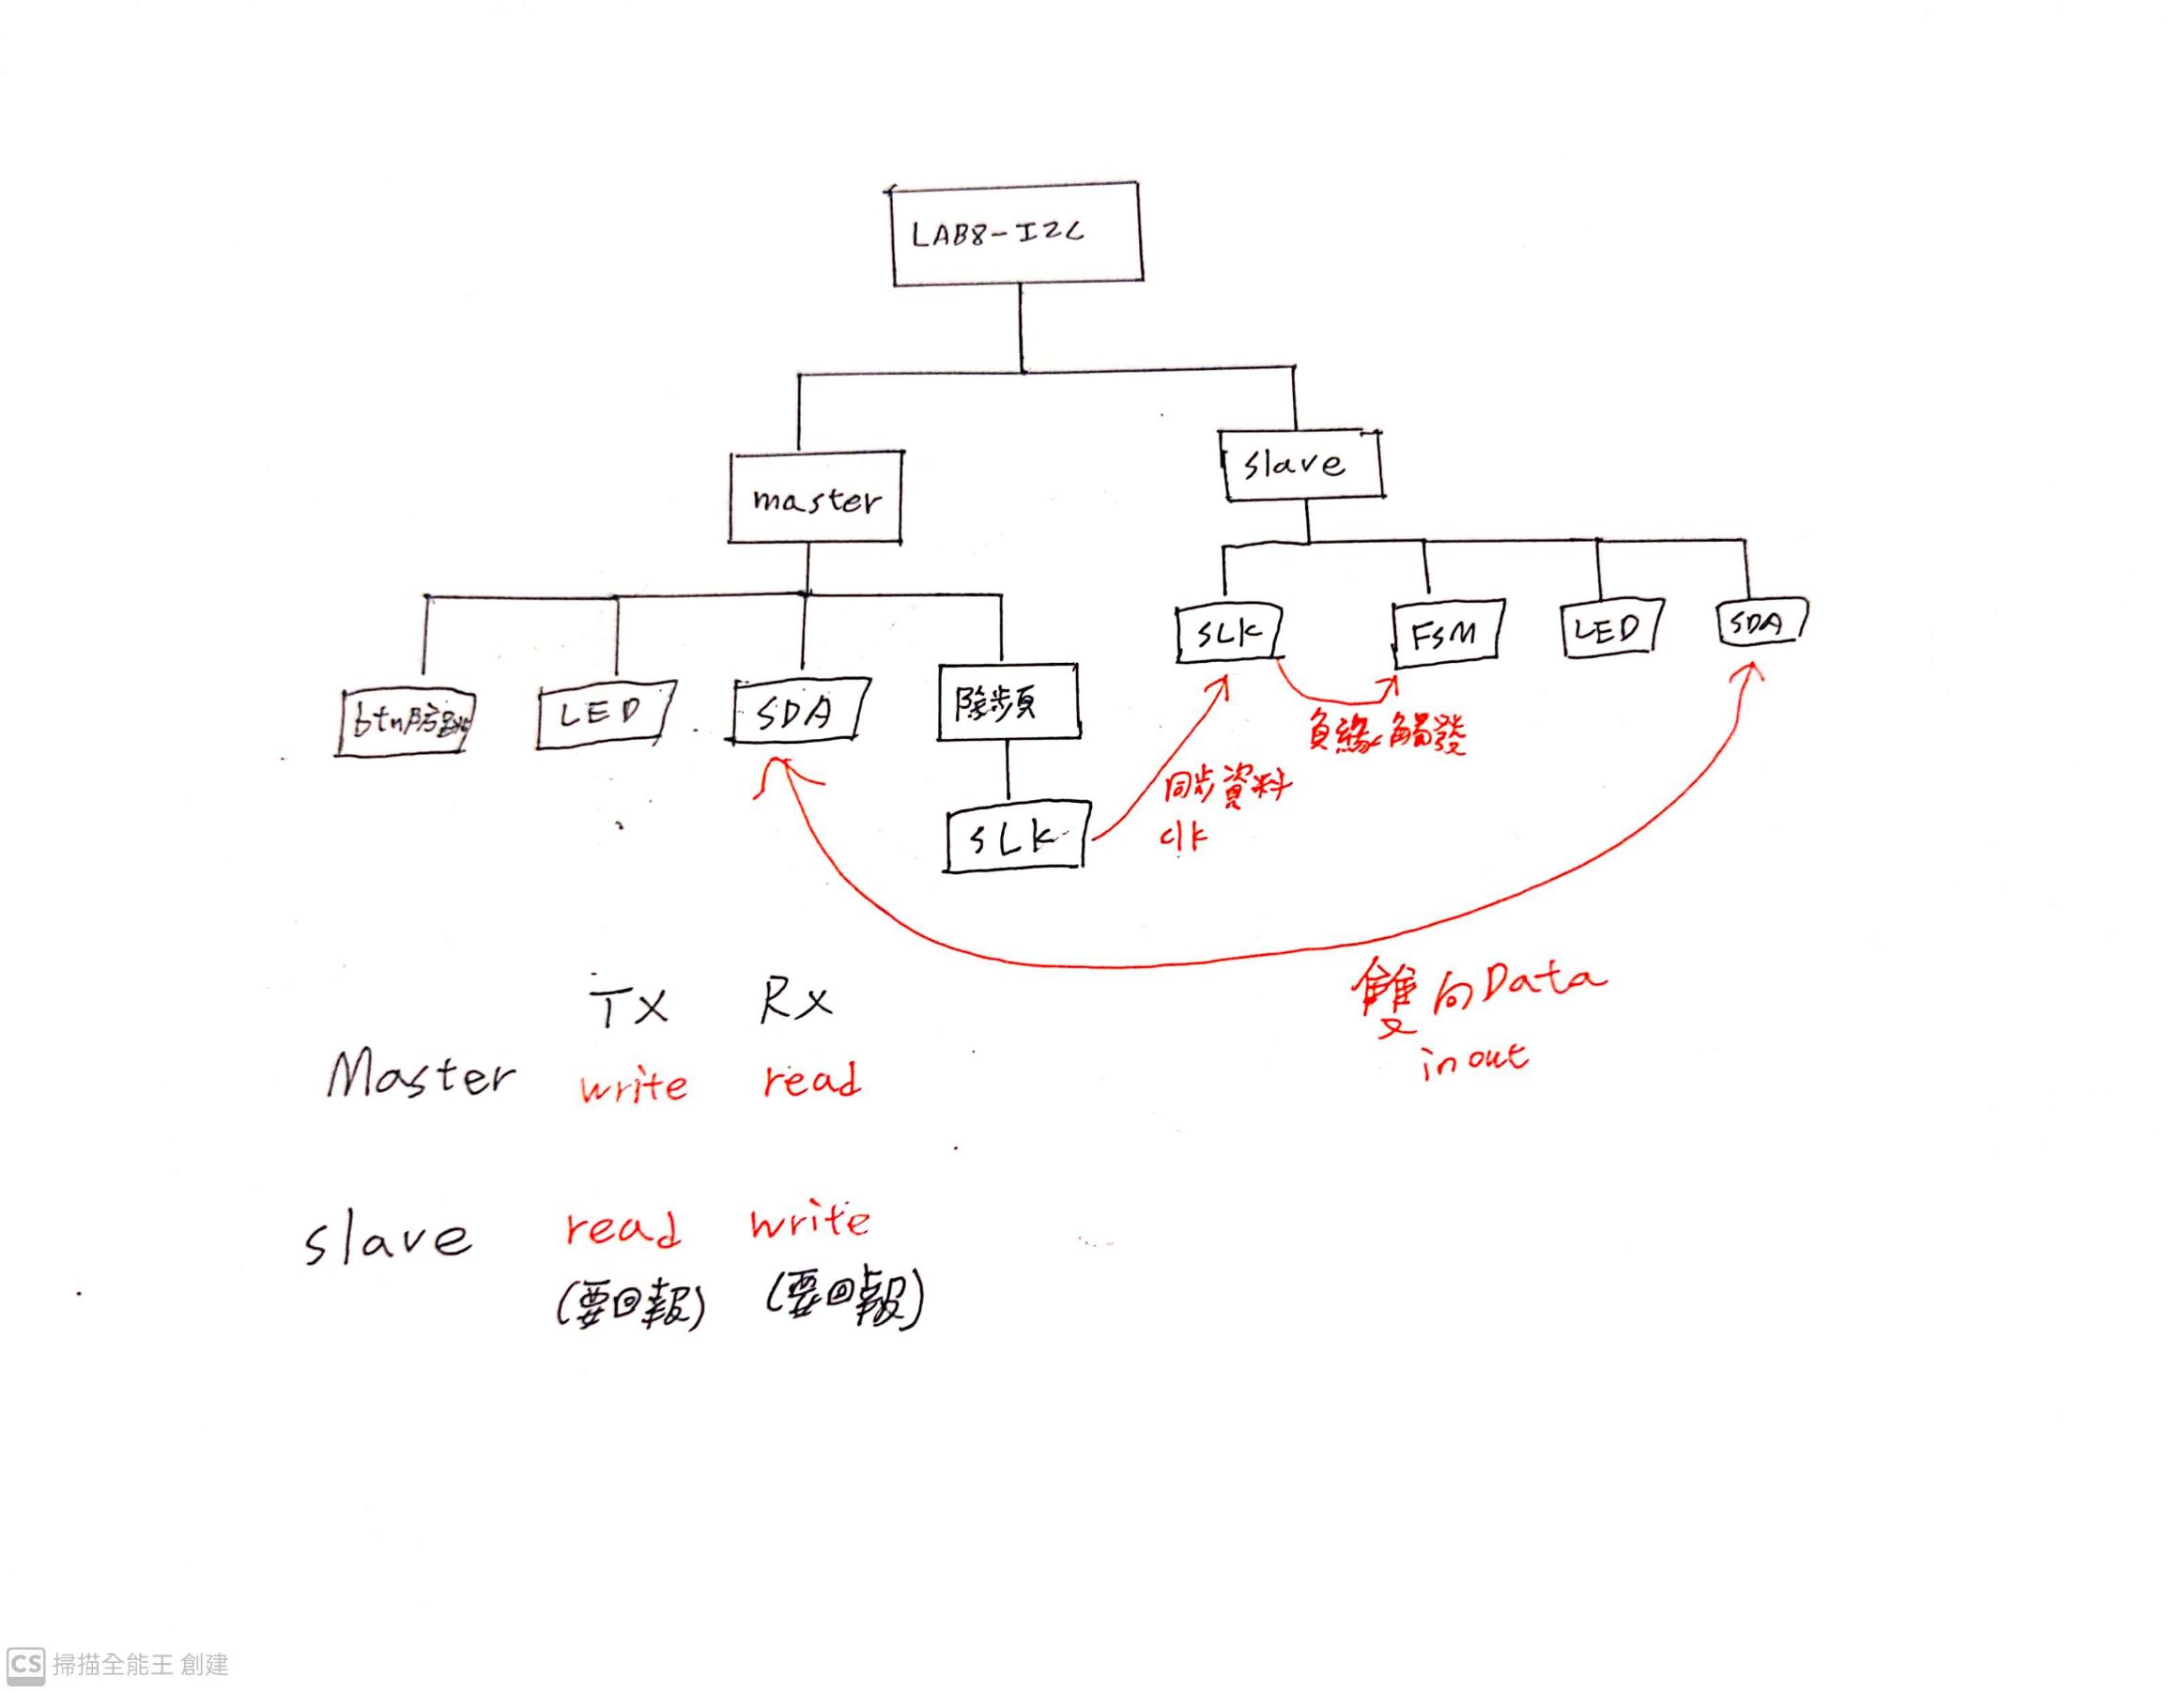 LAB8-I2C
master
slave
btn防跳
LED
SDA
除頻
SLK
SLK
FSM
LED
SDA
負緣觸發
同步資料
clk
雙向Data
inout
Tx Rx
Master write read
slave read write
(要回報) (要回報)
CS 掃描全能王 創建